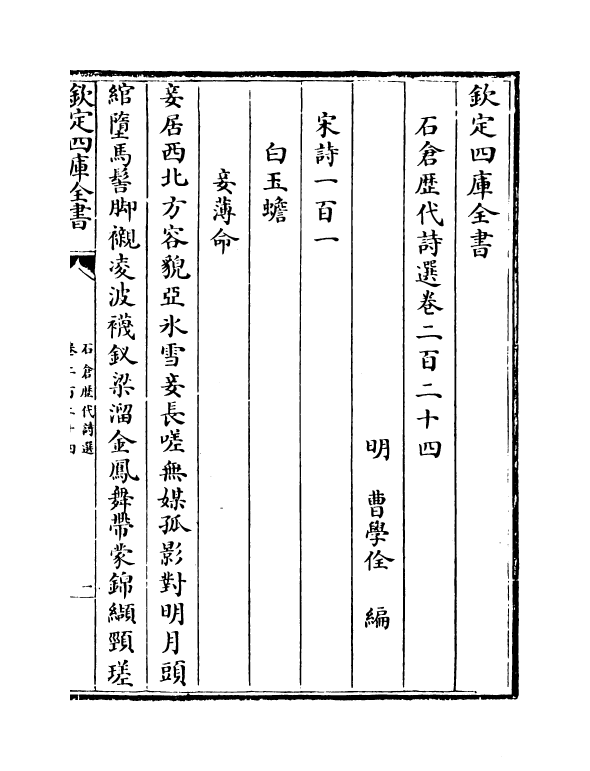 欽定四庫全書
石倉歴代詩選卷二百二十四
明　曹學佺　編
宋詩一百一
白玉蟾
妾薄命
妾居西北方容貌亞氷雪妾長嗟無媒孤影對明月頭
綰墮馬髻脚襯凌波襪釵梁溜金鳳舞帶蒙錦纈頸瑳
欽定四庫全書
石倉歴代詩選
卷二百二十四
一